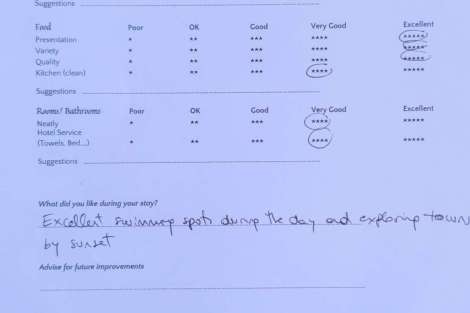 Suggestions
Food Poor OK Good Very Good Excellent
Presentation * ** *** **** *****
Variety * ** *** **** *****
Quality * ** *** **** *****
Kitchen (clean) * ** *** **** *****
Suggestions
Rooms/ Bathrooms Poor OK Good Very Good Excellent
Neatly * ** *** **** *****
Hotel Service
(Towels, Bed...) * ** *** **** *****
Suggestions
What did you like during your stay?
Excellent swimming spots during the day and exploring town
by sunset
Advise for future improvements